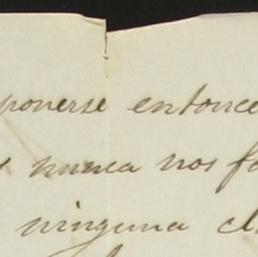 ponerse entonce
nunca nos fa
ninguna cl